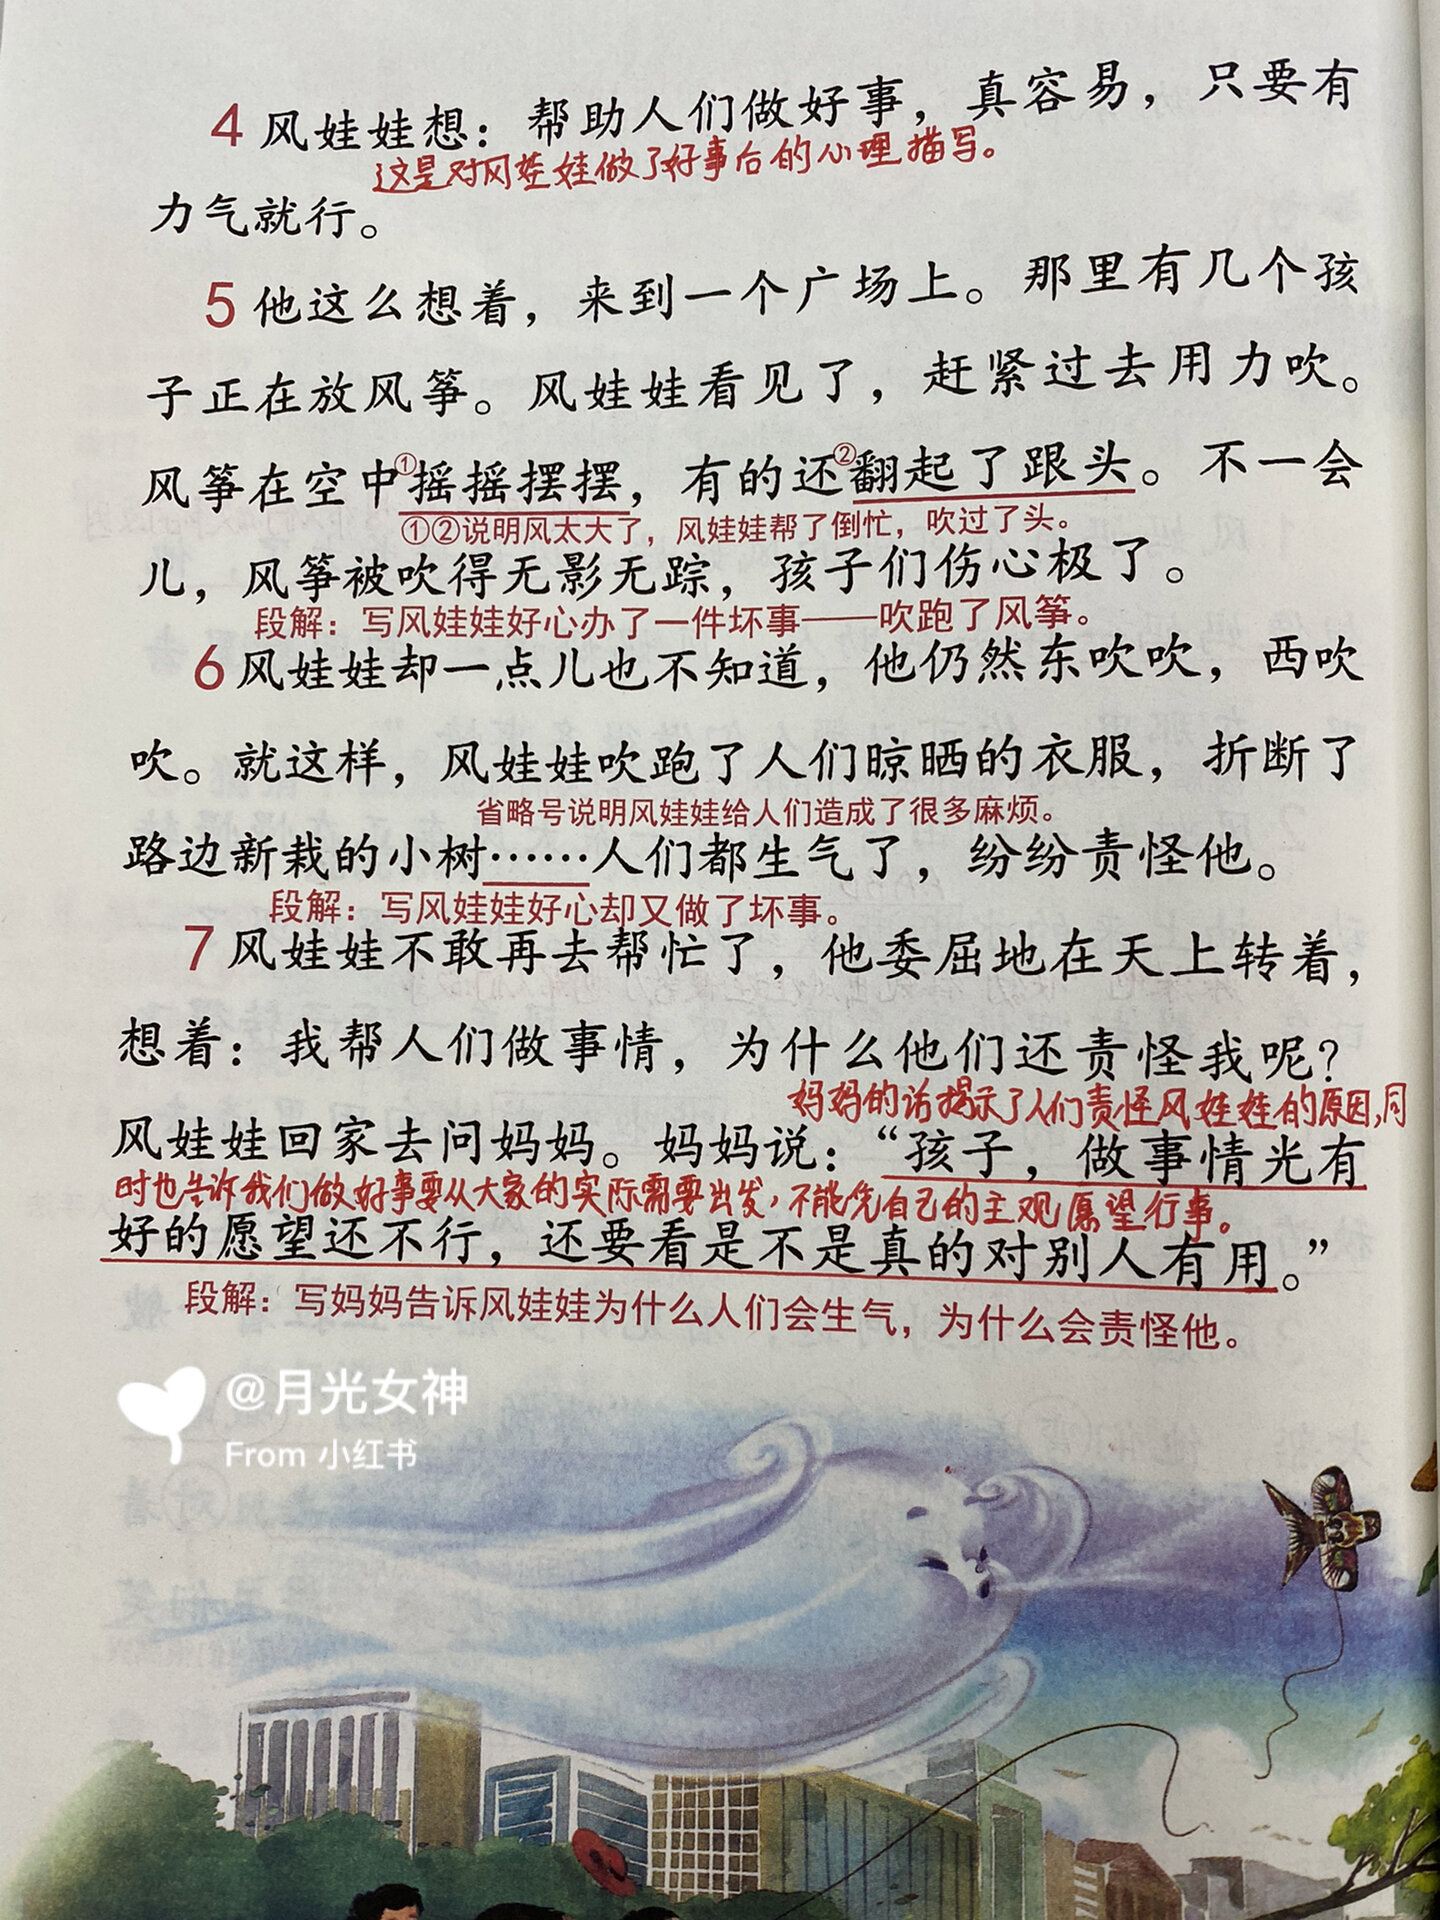 4 风娃娃想：帮助人们做好事，真容易，只要有
这是对风娃娃做了好事后的心理描写。
力气就行。
5 他这么想着，来到一个广场上。那里有几个孩
子正在放风筝。风娃娃看见了，赶紧过去用力吹。
风筝在空中①摇摇摆摆，有的还②翻起了跟头。不一会
①②说明风太大了，风娃娃帮了倒忙，吹过了头。
儿，风筝被吹得无影无踪，孩子们伤心极了。
段解：写风娃娃好心办了一件坏事——吹跑了风筝。
6 风娃娃却一点儿也不知道，他仍然东吹吹，西吹
吹。就这样，风娃娃吹跑了人们晾晒的衣服，折断了
省略号说明风娃娃给人们造成了很多麻烦。
路边新栽的小树……人们都生气了，纷纷责怪他。
段解：写风娃娃好心却又做了坏事。
7 风娃娃不敢再去帮忙了，他委屈地在天上转着，
想着：我帮人们做事情，为什么他们还责怪我呢？
妈妈的话揭示了人们责怪风娃娃的原因，同
风娃娃回家去问妈妈。妈妈说：“孩子，做事情光有
时也告诉我们做好事要从大家的实际需要出发，不能凭自己的主观愿望行事。
好的愿望还不行，还要看是不是真的对别人有用。”
段解：写妈妈告诉风娃娃为什么人们会生气，为什么会责怪他。
@月光女神
From 小红书